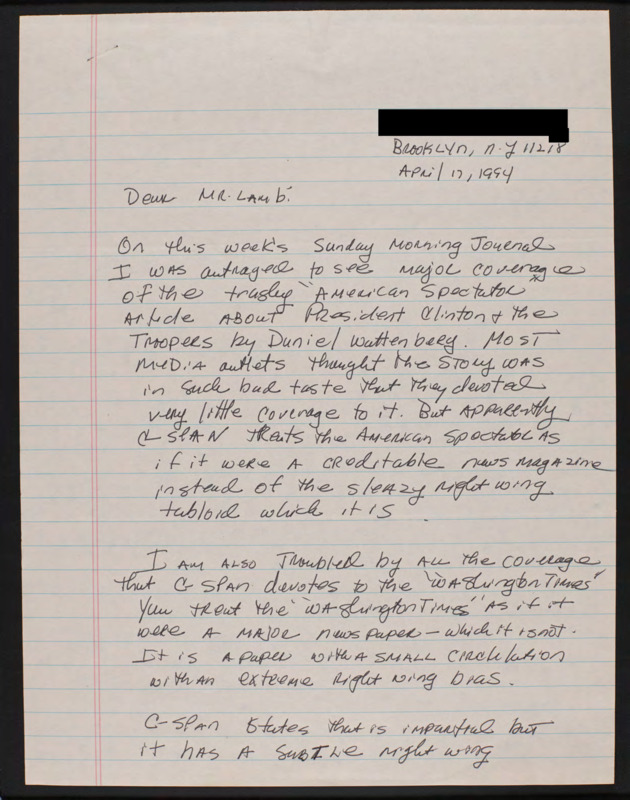 Brooklyn, N.Y 11218
April 17, 1994
Dear Mr. Lamb:
On this week's Sunday Morning Journal
I was outraged to see major coverage
of the trashy "American Spectator"
Article About President Clinton & the
Troopers by Daniel Wattenberg. Most
Media outlets thought the story was
in such bad taste that they devoted
very little coverage to it. But Apparently
C-SPAN treats the American Spectator As
if it were a creditable news magazine
instead of the sleazy right wing
tabloid which it is.
I am also Troubled by all the coverage
that C-SPAN devotes to the "Washington Times"
You treat the "Washington Times" as if it
were a major newspaper - which it is not.
It is a paper with a small circulation
with an extreme right wing bias.
C-SPAN states that is impartial but
it has a subtle right wing